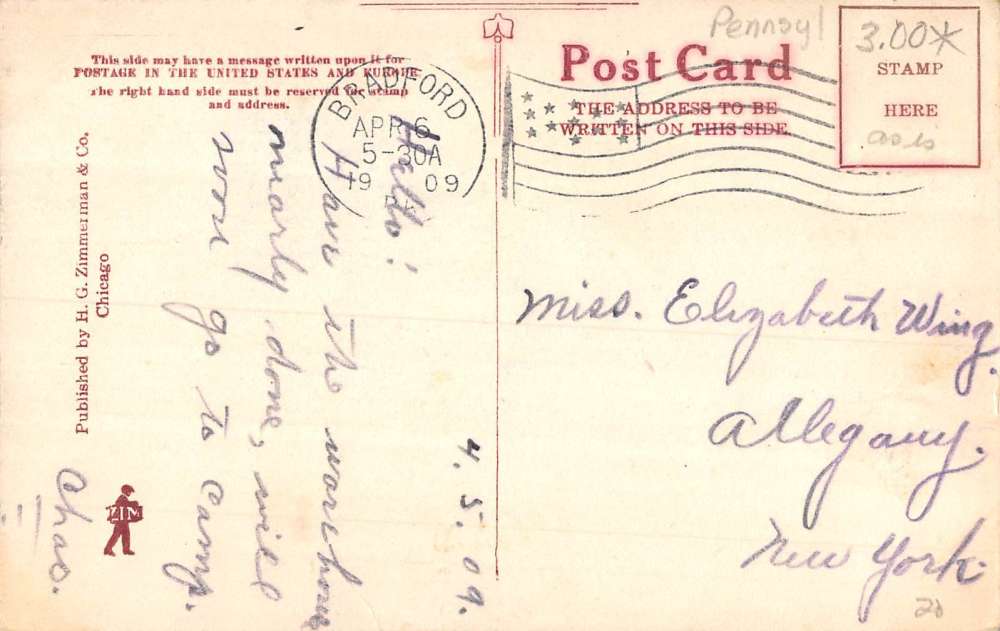 This side may have a message written upon it for
POSTAGE IN THE UNITED STATES AND EUROPE
The right hand side must be reserved for stamp
and address.
Published by H. G. Zimmerman & Co.
Chicago
ZIM
BRADFORD
APR 6
5-30A
19 09
PA
4.5.09.
Hello!
Have the warehouse
nearly done, will
soon go to camp.
Chas.
Pennsyl
Post Card
THE ADDRESS TO BE
WRITTEN ON THIS SIDE
3.00*
STAMP
HERE
as is
Miss. Elizabeth Wing.
Allegany.
New York.
20